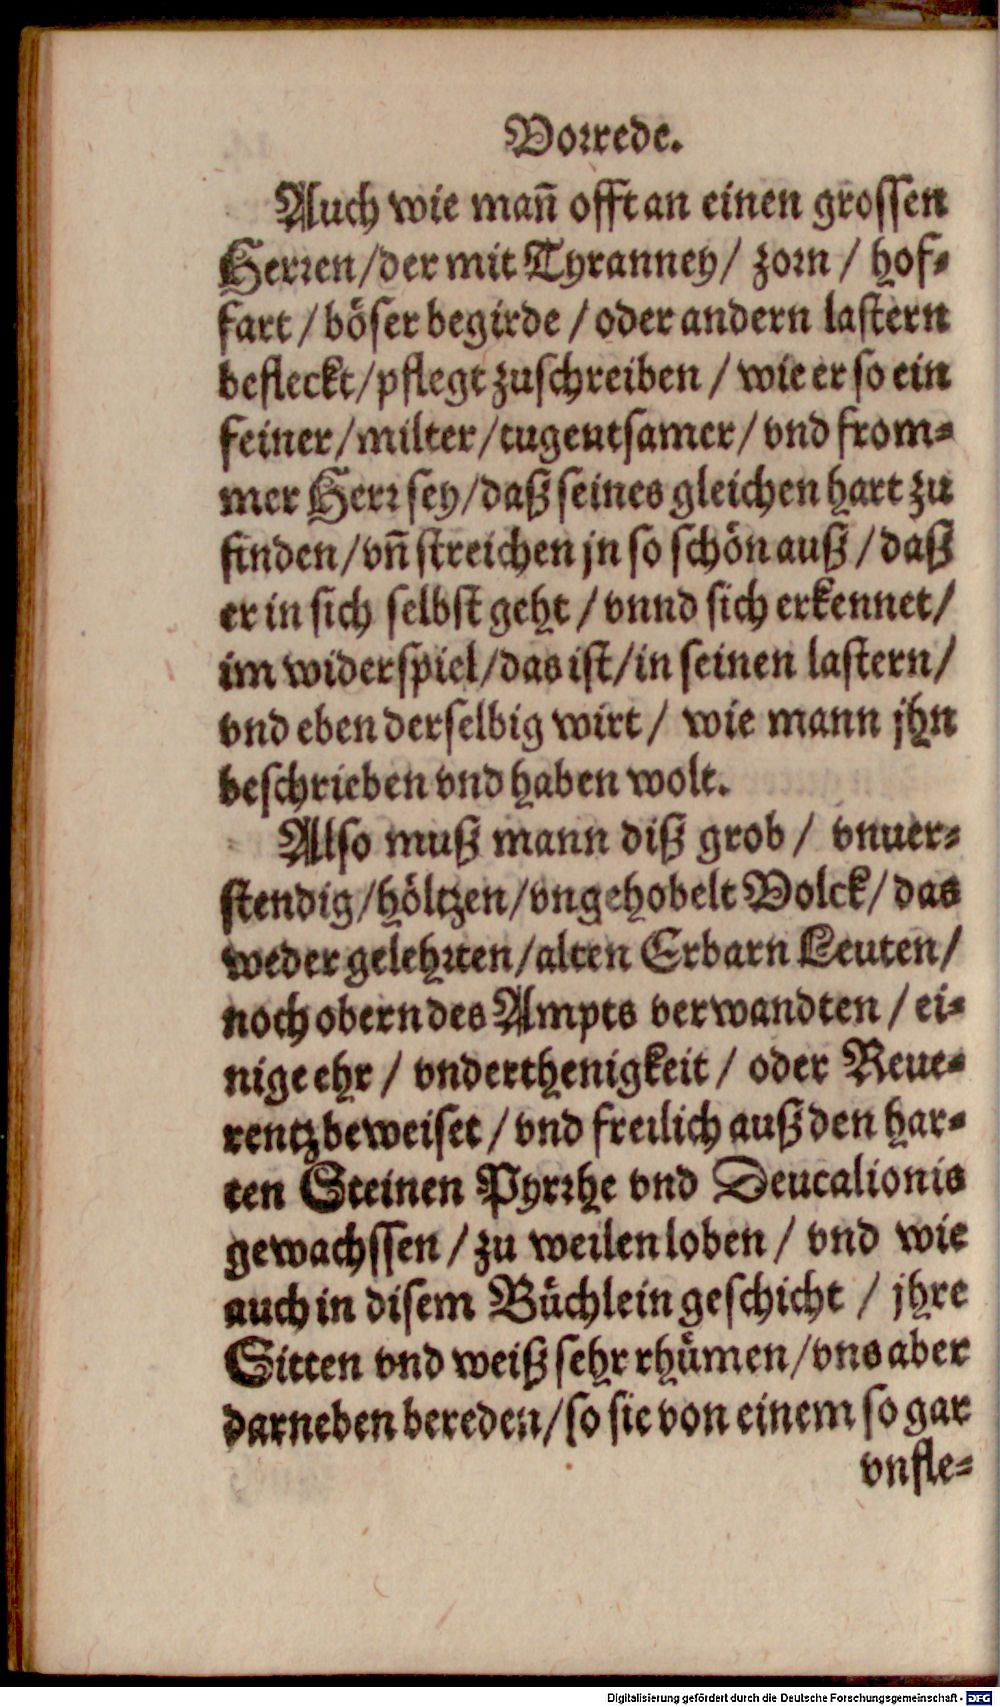 Vorrede.
Auch wie mañ offt an einen grossen
Herren/der mit Tyranney/ zorn / hof-
fart / böser begirde / oder andern lastern
befleckt/pflegt zuschreiben / wie er so ein
feiner/milter/tugentsamer/ vnd from-
mer Herr sey/daß seines gleichen hart zu
finden/vñ streichen jn so schön auß / daß
er in sich selbst geht / vnnd sich erkennet/
im widerspiel/das ist/in seinen lastern/
vnd eben derselbig wirt / wie mann jhn
beschrieben vnd haben wolt.
Also muß mann diß grob / vnuer-
stendig/höltzen/vngehobelt Volck/ das
weder gelehrten/alten Erbarn Leuten/
noch obern des Ampts verwandten / ei-
nige ehr / vnderthenigkeit / oder Reue-
rentz beweiset / vnd freilich auß den har-
ten Steinen Pyrrhe vnd Deucalionis
gewachssen / zu weilen loben / vnd wie
auch in disem Büchlein geschicht / jhre
Sitten vnd weiß sehr rhümen/vns aber
darneben bereden/so sie von einem so gar
vnfle-
Digitalisierung gefördert durch die Deutsche Forschungsgemeinschaft - DFG